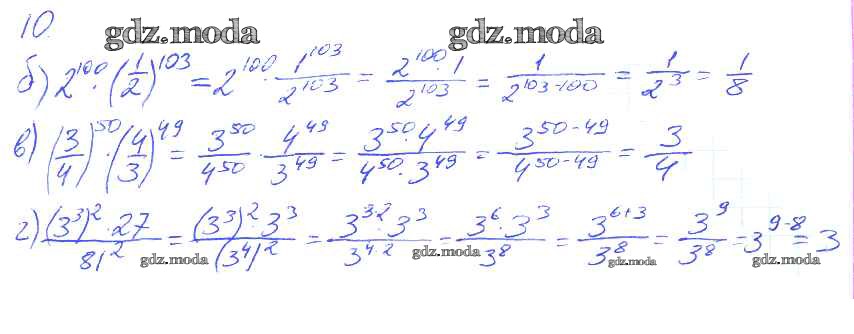 10.
gdz.moda gdz.moda
б) 2^100 · (1/2)^103 = 2^100 · 1^103/2^103 = 2^100 · 1/2^103 = 1/2^(103-100) = 1/2^3 = 1/8
в) (3/4)^50 · (4/3)^49 = 3^50/4^50 · 4^49/3^49 = 3^50 · 4^49/4^50 · 3^49 = 3^(50-49)/4^(50-49) = 3/4
г) (3^3)^2 · 27/81^2 = (3^3)^2 · 3^3/(3^4)^2 = 3^(3·2) · 3^3/3^(4·2) = 3^6 · 3^3/3^8 = 3^(6+3)/3^8 = 3^9/3^8 = 3^(9-8) = 3
gdz.moda gdz.moda gdz.moda gdz.moda